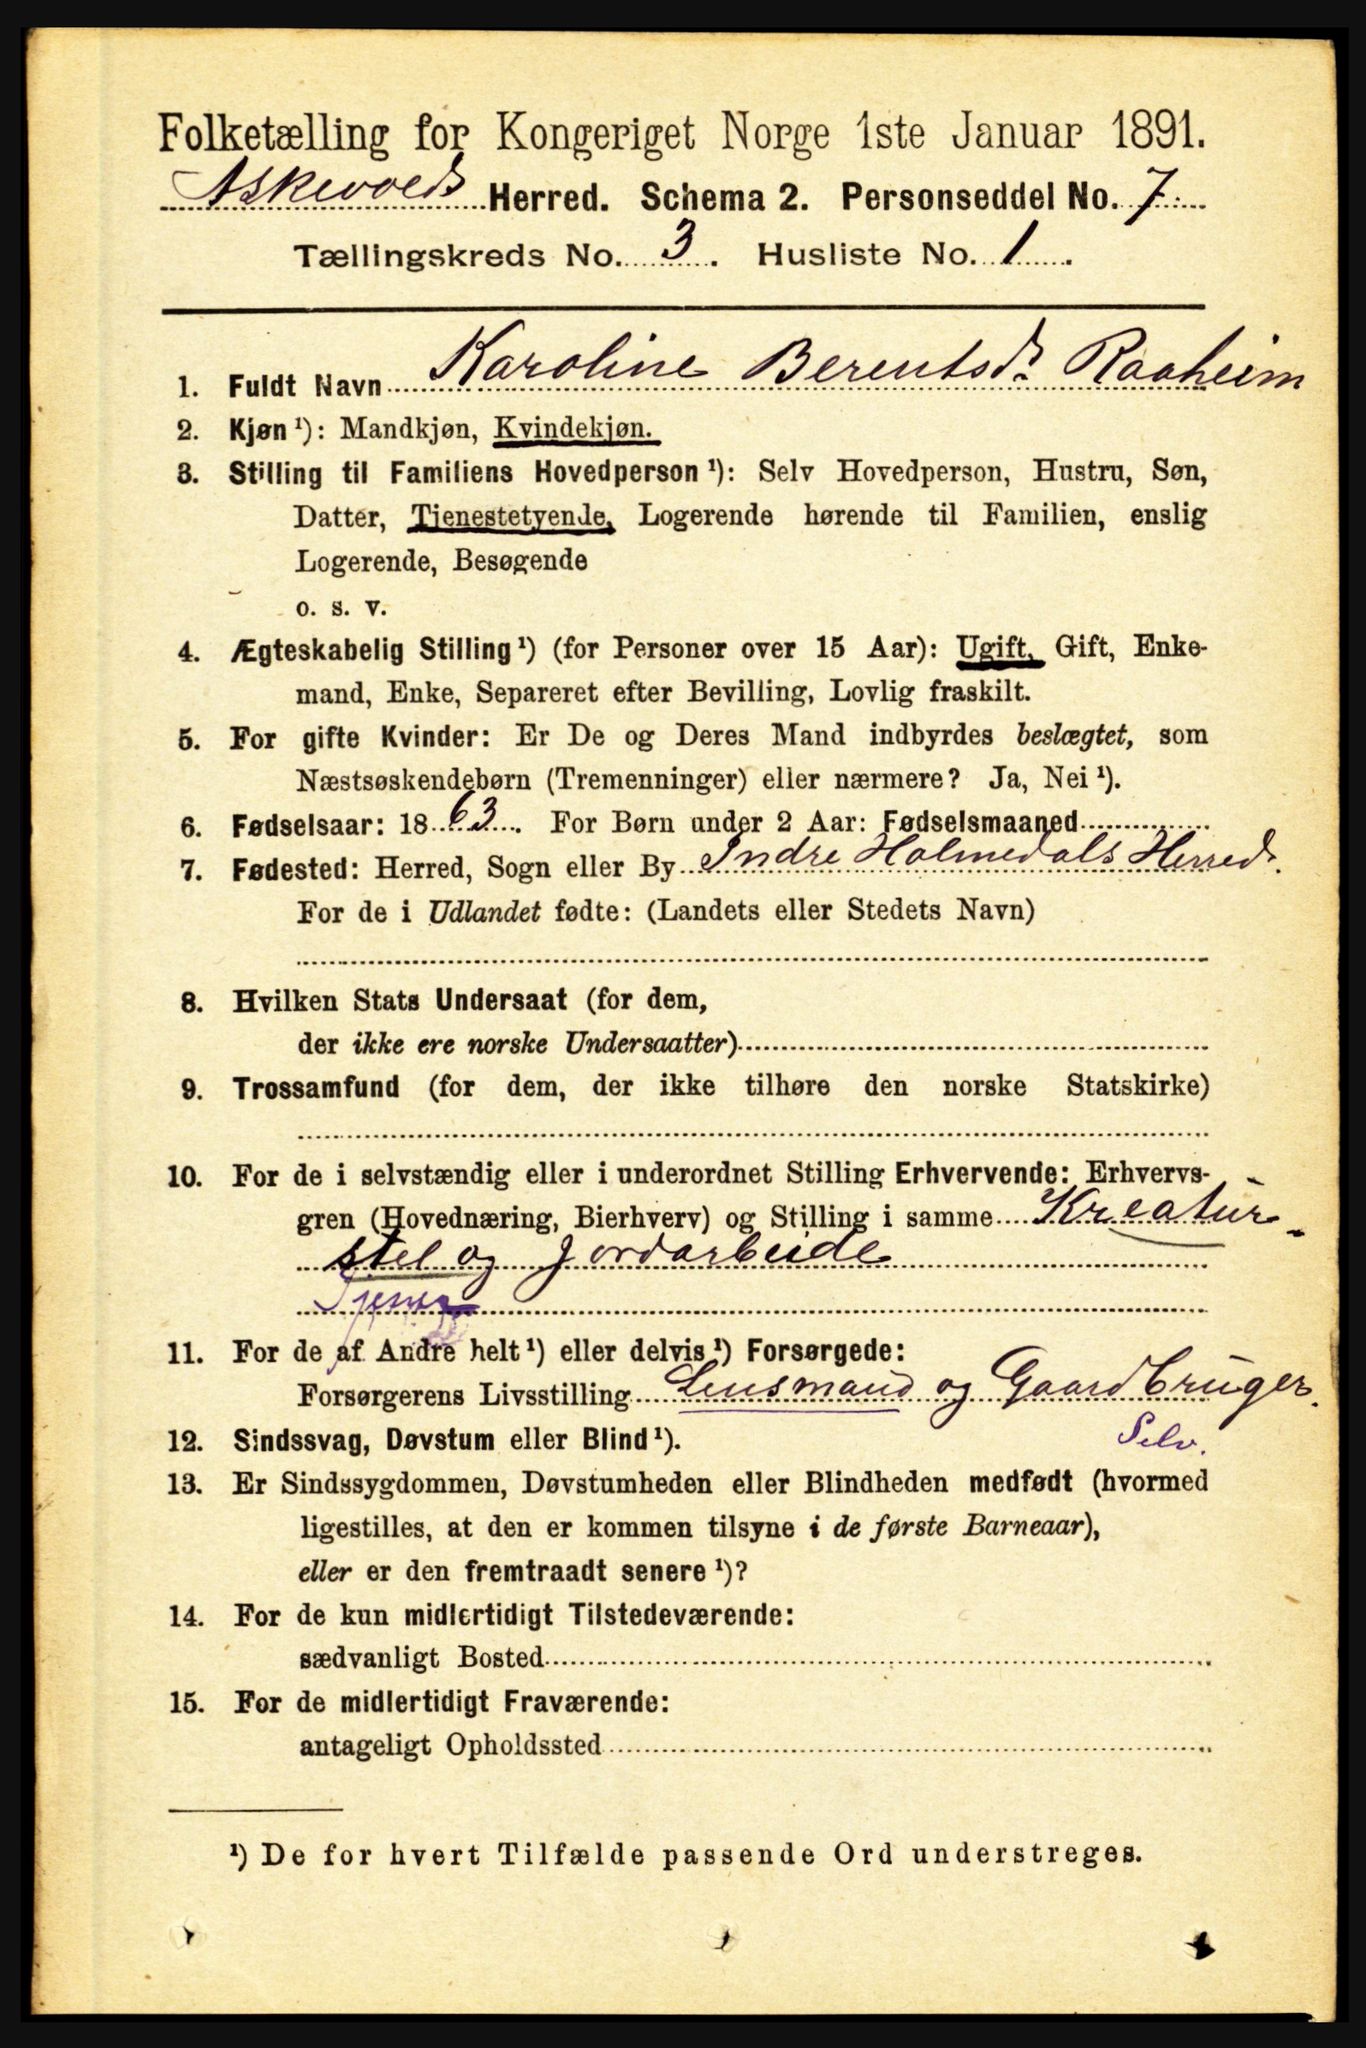 Folketælling for Kongeriget Norge 1ste Januar 1891.
Askevolds Herred. Schema 2. Personseddel No. 7
Tællingskreds No. 3. Husliste No. 1.
1. Fuldt Navn Karoline Berentsdr. Raaheim
2. Kjøn ¹): Mandkjøn, Kvindekjøn.
3. Stilling til Familiens Hovedperson ¹): Selv Hovedperson, Hustru, Søn,
Datter, Tjenestetyende, Logerende hørende til Familien, enslig
Logerende, Besøgende
o. s. v.
4. Ægteskabelig Stilling ¹) (for Personer over 15 Aar): Ugift, Gift, Enke-
mand, Enke, Separeret efter Bevilling, Lovlig fraskilt.
5. For gifte Kvinder: Er De og Deres Mand indbyrdes beslægtet, som
Næstsøskendebørn (Tremenninger) eller nærmere? Ja, Nei ¹).
6. Fødselsaar: 1863. For Børn under 2 Aar: Fødselsmaaned
7. Fødested: Herred, Sogn eller By Indre Holmedals Herred.
For de i Udlandet fødte: (Landets eller Stedets Navn)
8. Hvilken Stats Undersaat (for dem,
der ikke ere norske Undersaatter)
9. Trossamfund (for dem, der ikke tilhøre den norske Statskirke)
10. For de i selvstændig eller i underordnet Stilling Erhvervende: Erhvervs-
gren (Hovednæring, Bierhverv) og Stilling i samme Kreatur-
stel og Jordarbeide
Tjener
11. For de af Andre helt ¹) eller delvis ¹) Forsørgede:
Forsørgerens Livsstilling Lensmand og Gaardbruger.
12. Sindssvag, Døvstum eller Blind ¹). Selv.
13. Er Sindssygdommen, Døvstumheden eller Blindheden medfødt (hvormed
ligestilles, at den er kommen tilsyne i de første Barneaar),
eller er den fremtraadt senere ¹)?
14. For de kun midlertidigt Tilstedeværende:
sædvanligt Bosted
15. For de midlertidigt Fraværende:
antageligt Opholdssted
¹) De for hvert Tilfælde passende Ord understreges.